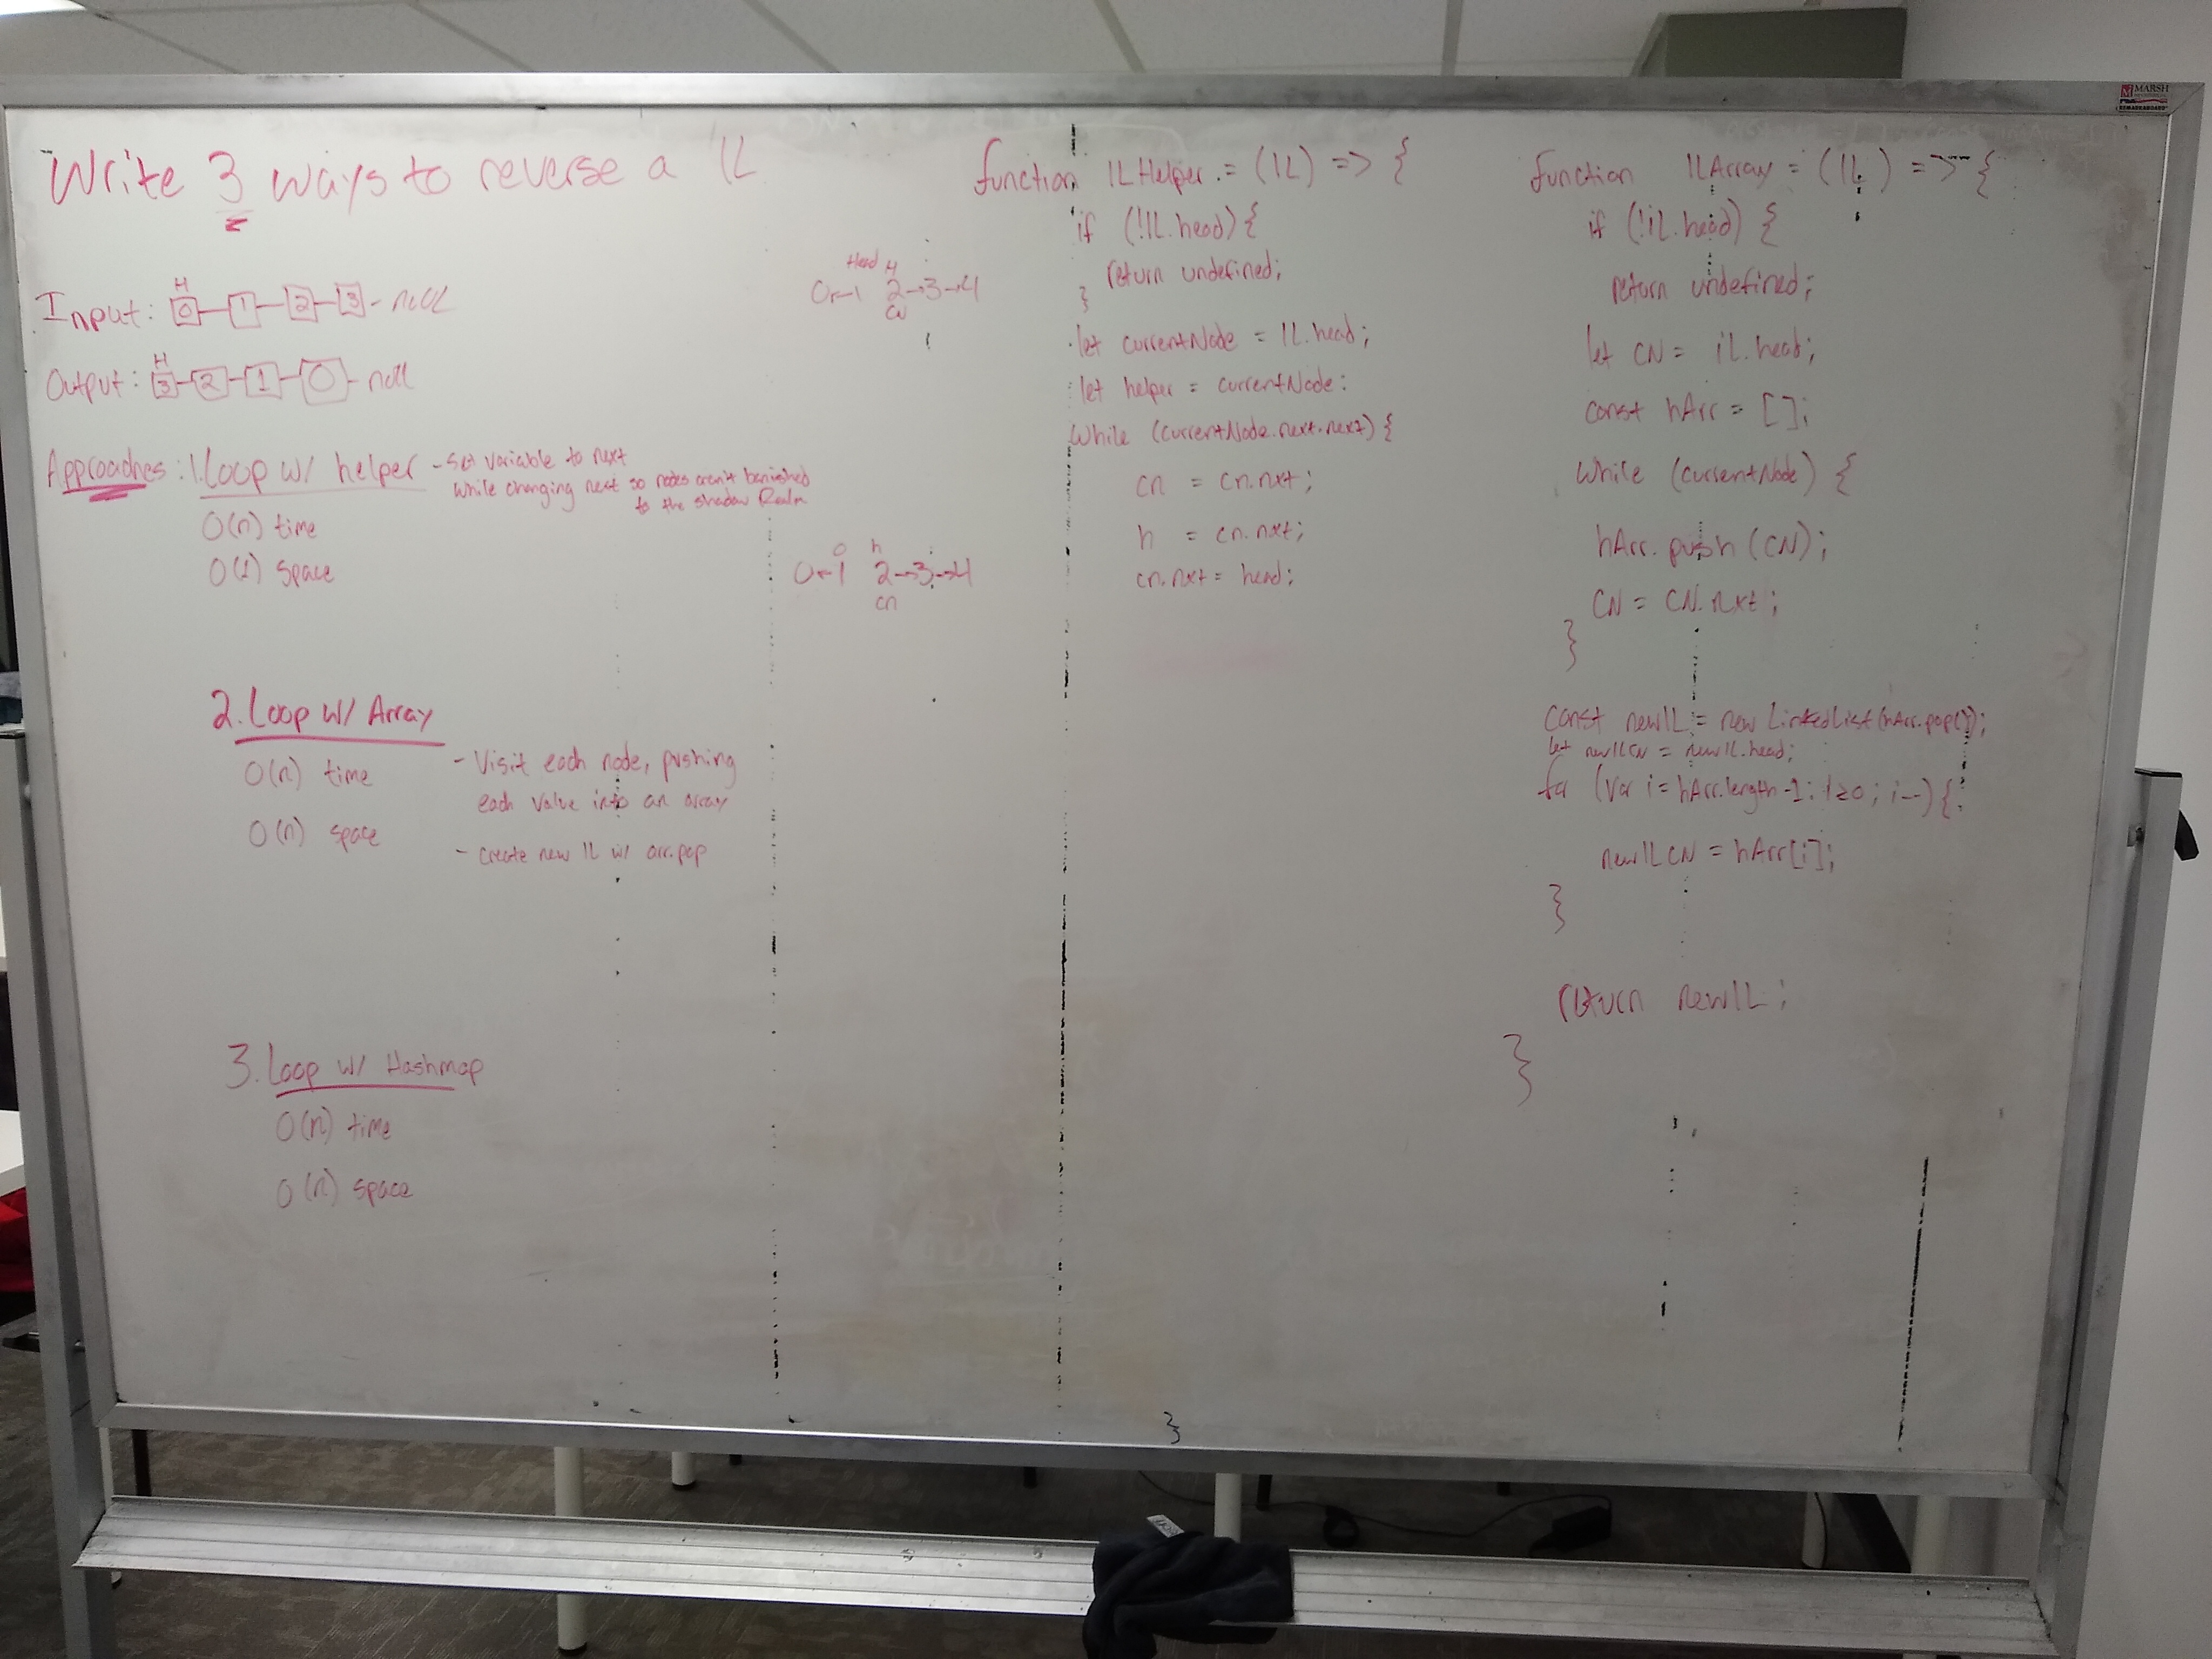 Write 3 ways to reverse a lL
Input: H 0 1 2 3 - null
Output: H 3 2 1 0 - null
Approaches: 1. Loop w/ helper - Set variable to next
while changing next so nodes aren't banished
to the shadow Realm
O(n) time
O(1) space
2. Loop w/ Array
O(n) time
O(n) space
- Visit each node, pushing
each value into an array
- create new lL w/ arr.pop
3. Loop w/ Hashmap
O(n) time
O(n) space
Head H
0←1 2→3→4
CN
h
0←1 2→3→4
cn
function lLHelper = (lL) => {
if (!lL.head) {
return undefined;
}
let currentNode = lL.head;
let helper = currentNode:
While (currentNode.next.next) {
cn = cn.nxt;
h = cn.nxt;
cn.nxt = head;
}
function lLArray = (lL) => {
if (!lL.head) {
return undefined;
let CN = lL.head;
const hArr = [];
While (currentNode) {
hArr.push(CN);
CN = CN.nxt;
}
Const newlL = new LinkedList(hArr.pop());
let newlLCN = newlL.head;
for (Var i = hArr.length-1: i≥0; i--) {
newlLCN = hArr[i];
}
return newlL;
}
MARSH
REMARKABOARD